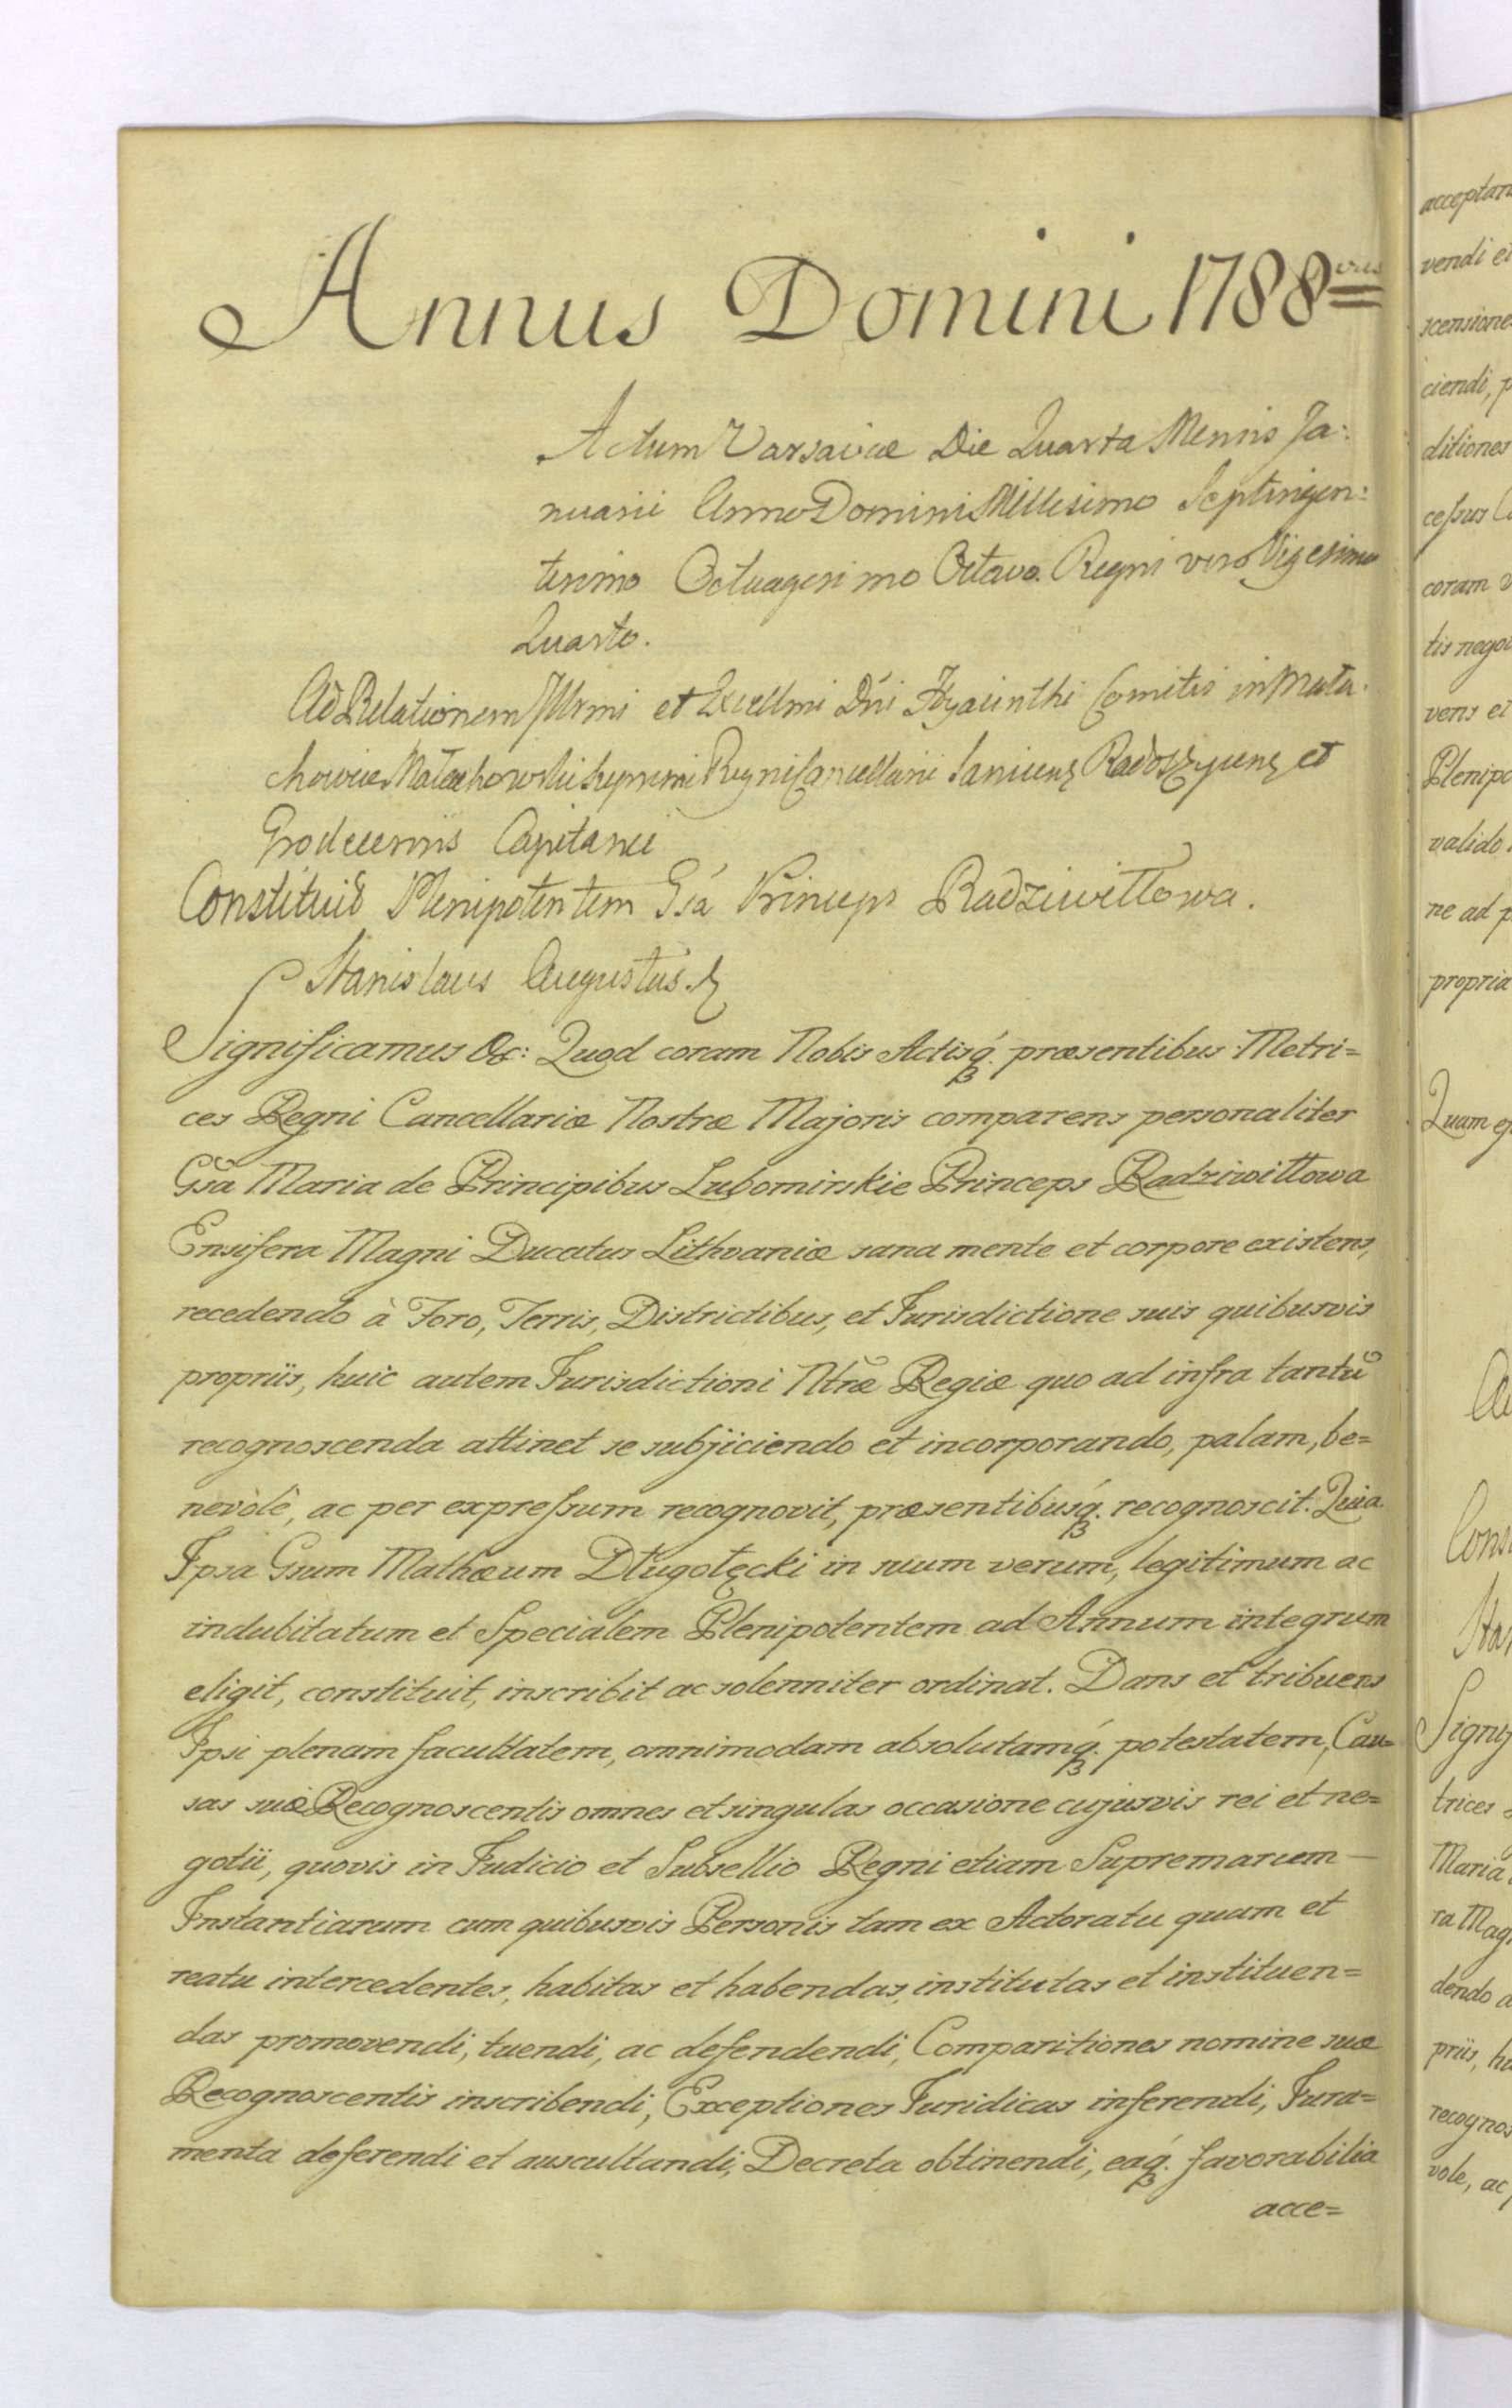 Annus Domini 1788vus
Actum Varsaviæ Die Quarta Mensis Ja:
nuarii Anno Domini Millesimo Septingen:
tesimo Octuagesimo Octavo. Regni vero Vigesimo
Quarto.
Ad Relationem Illrmi et Excellmi Dni Hyacinthi Comitis in Mała
chowice Małachowski Supremi Regni Cancellarii Sanicens Radoszycens et
Grodecensis Capitanei
Constituit Plenipotentem Gsa Princeps Radziwiłłowa.
Stanislaus Augustus.
Significamus &c: Quod coram Nobis Actisq. præsentibus Metri=
ces Regni Cancellariæ Nostræ Majoris comparens personaliter
Gsa Maria de Principibus Lubomirskie Princeps Radziwiłłowa
Ensifera Magni Ducatus Lithvaniæ sana mente et corpore existens,
recedendo à Foro, Terris, Districtibus, et Jurisdictione suis quibusvis
propriis, huic autem Jurisdictioni Ntræ Regiæ quo ad infra tantũ
recognoscenda attinet se subjiciendo et incorporando, palam, be=
nevòlè, ac per expressum recognovit, præsentibusq. recognoscit. Quia
Ipsa Gsum Mathæum Długołęcki in suum verum, legitimum ac
indubitatum et Specialem Plenipotentem ad Annum integrum
eligit, constituit, inscribit ac solenniter ordinat. Dans et tribuens
Ipsi plenam facultatem, omnimodam absolutamq. potestatem, Cau=
sas suæ Recognoscentis omnes et singulas occasione cujusvis rei et ne=
gotii, quovis in Judicio et Subsellio Regni etiam Supremarum
Instantiarum cum quibusvis Personis tam ex Actoratu quam et
reatu intercedentes, habitas et habendas, institutas et instituen=
das promovendi, tuendi, ac defendendi, Comparitiones nomine suæ
Recognoscentis inscribendi, Exceptiones Juridicas inferendi, Jura=
menta deferendi et auscultandi, Decreta obtinendi, eaq. favorabilia
acce=
acceptan
vendi e
scensione
ciendi, p
ditiones
cessus C
coram
tis nego
vens et
Plenipo
valido
ne ad p
propria
Quam
Cons
Sta
Signif
trices
Maria
ra Mag
dendo a
priis, hu
recognos
vole, ac